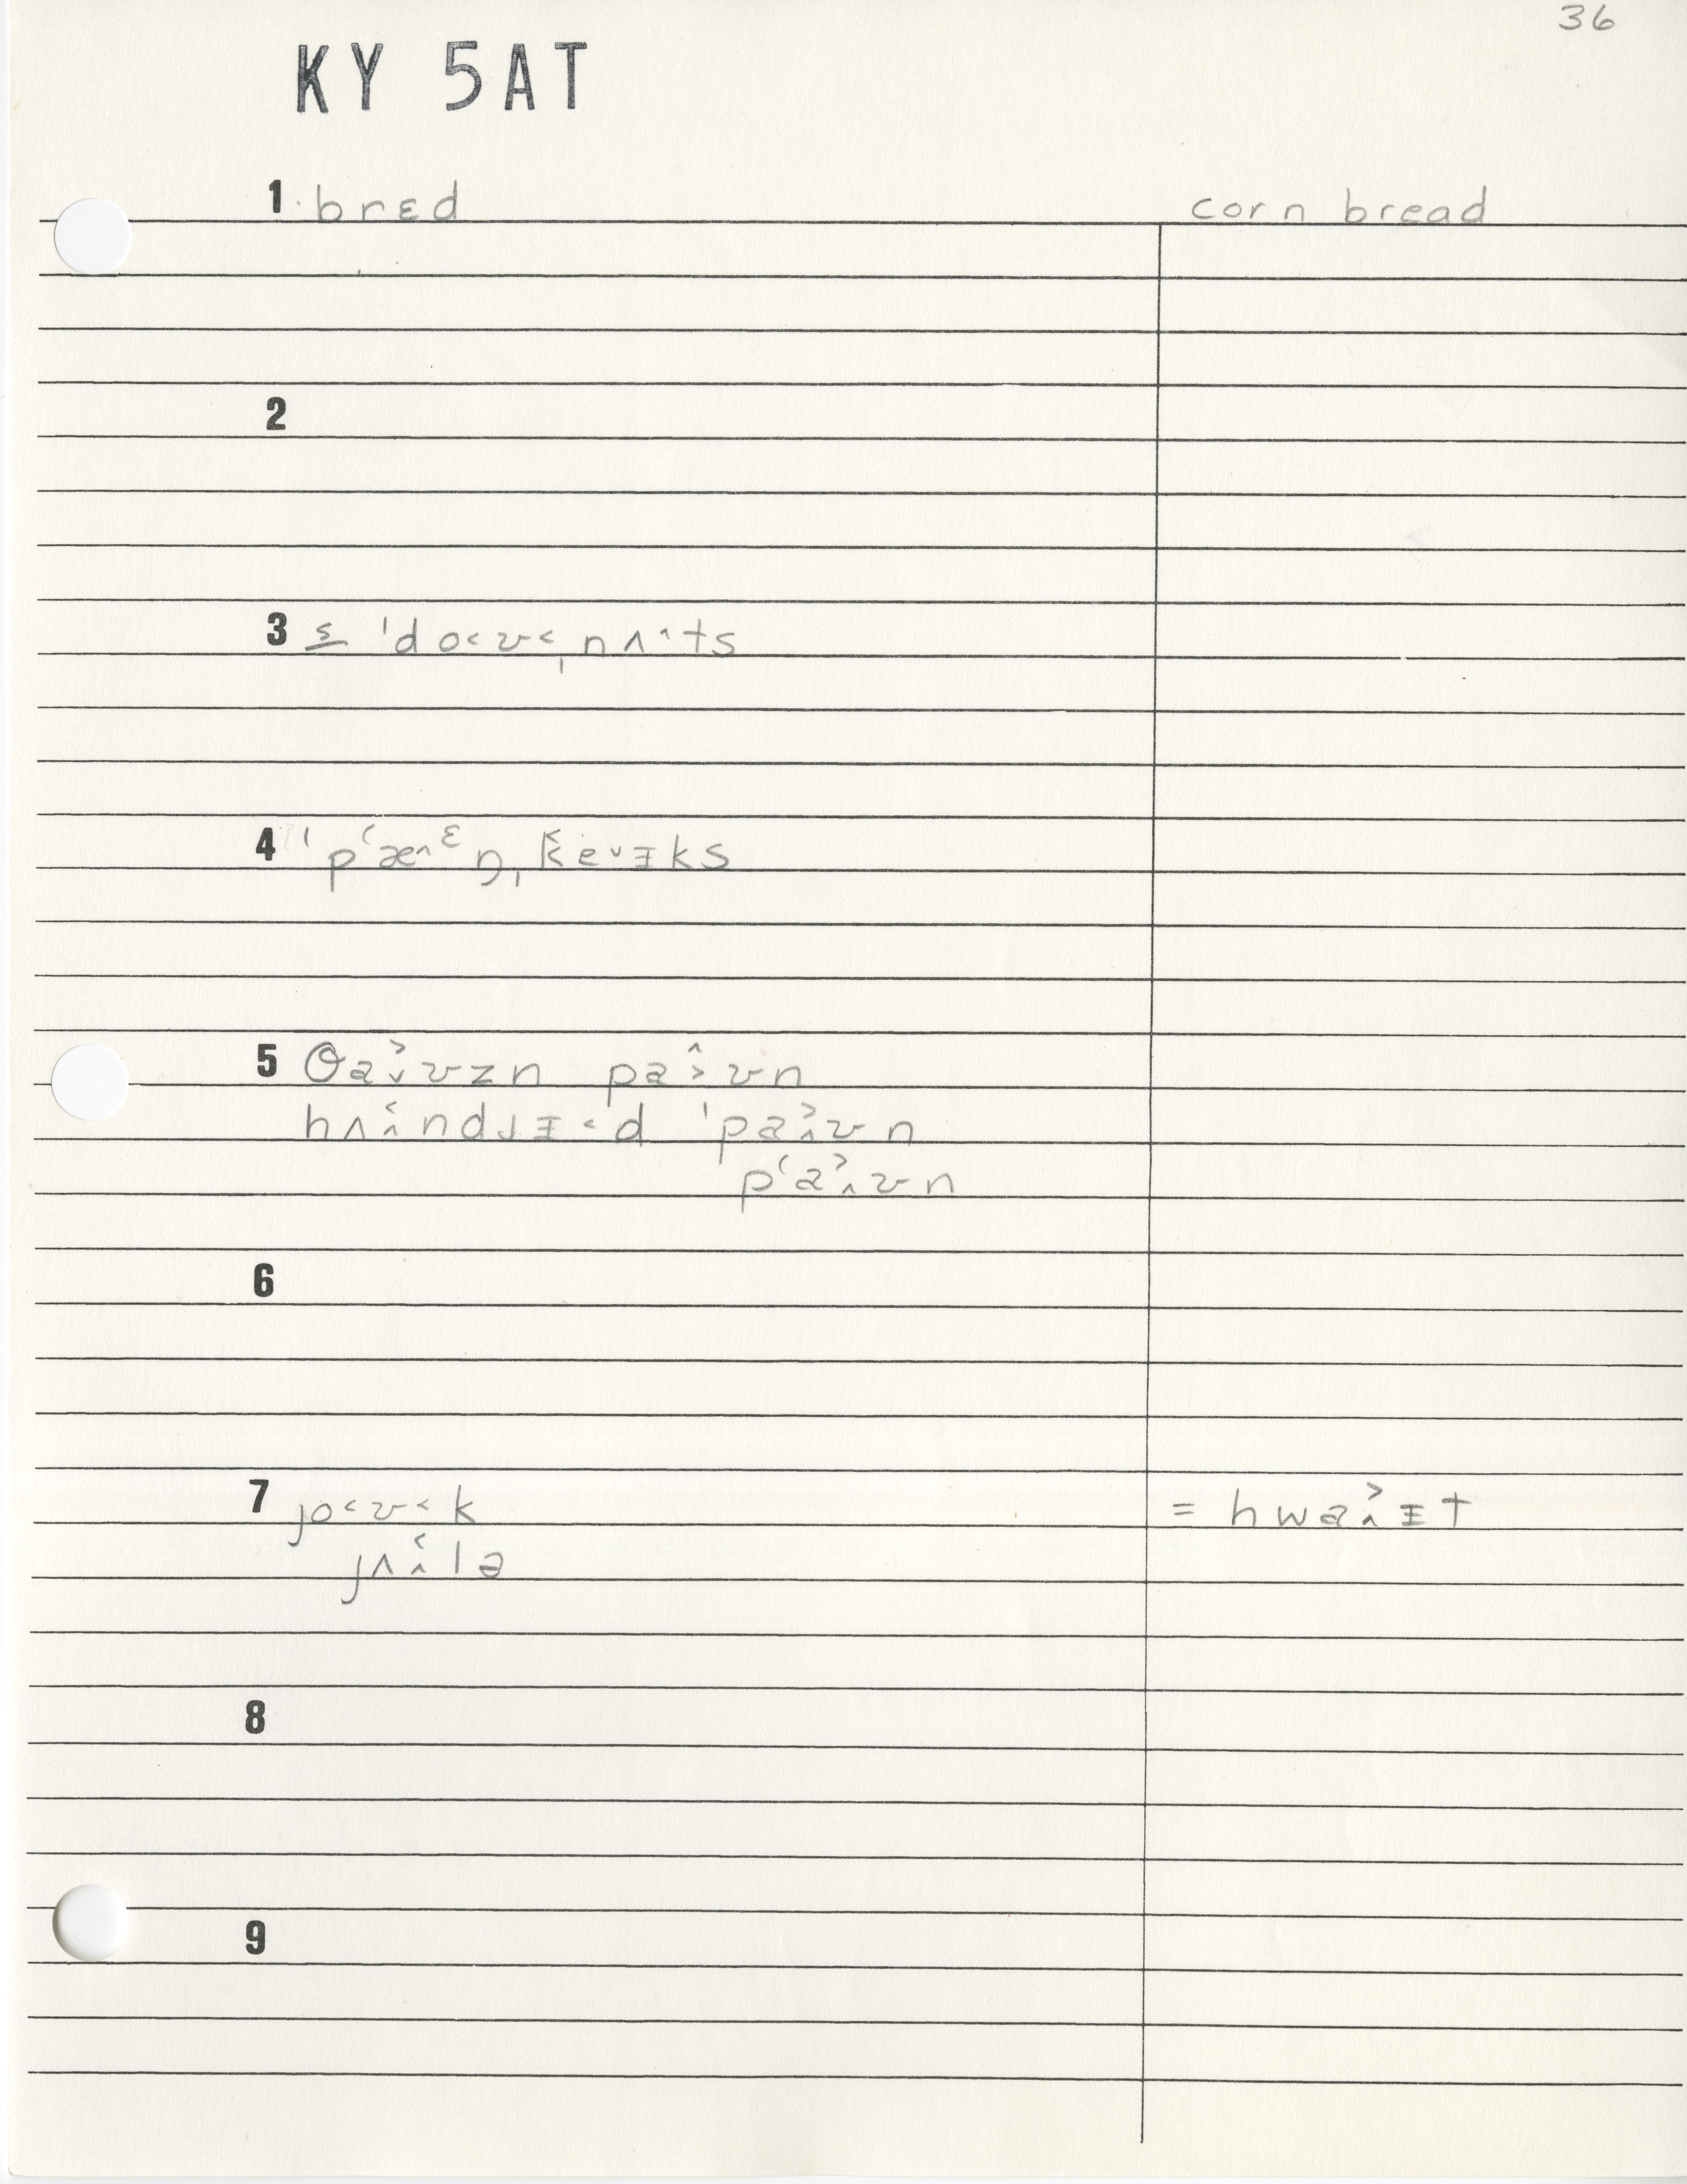 36
KY 5AT
1 brɛd corn bread
2
3 s̲ ˈdo˂ʊ˂ˌnʌ^ts
4 ˈpʻæ^ᵋnˌk̯̆e˅ɪks
5 θa˃˅ʊzn pa^˃ʊn
hʌ˂^ndɹɪ˂d ˈpa˃^ʊn
pʻa˃^ʊn
6
7 jo˂ʊ˂k = hwa˃^ɪt
jʌ˂^lə
8
9